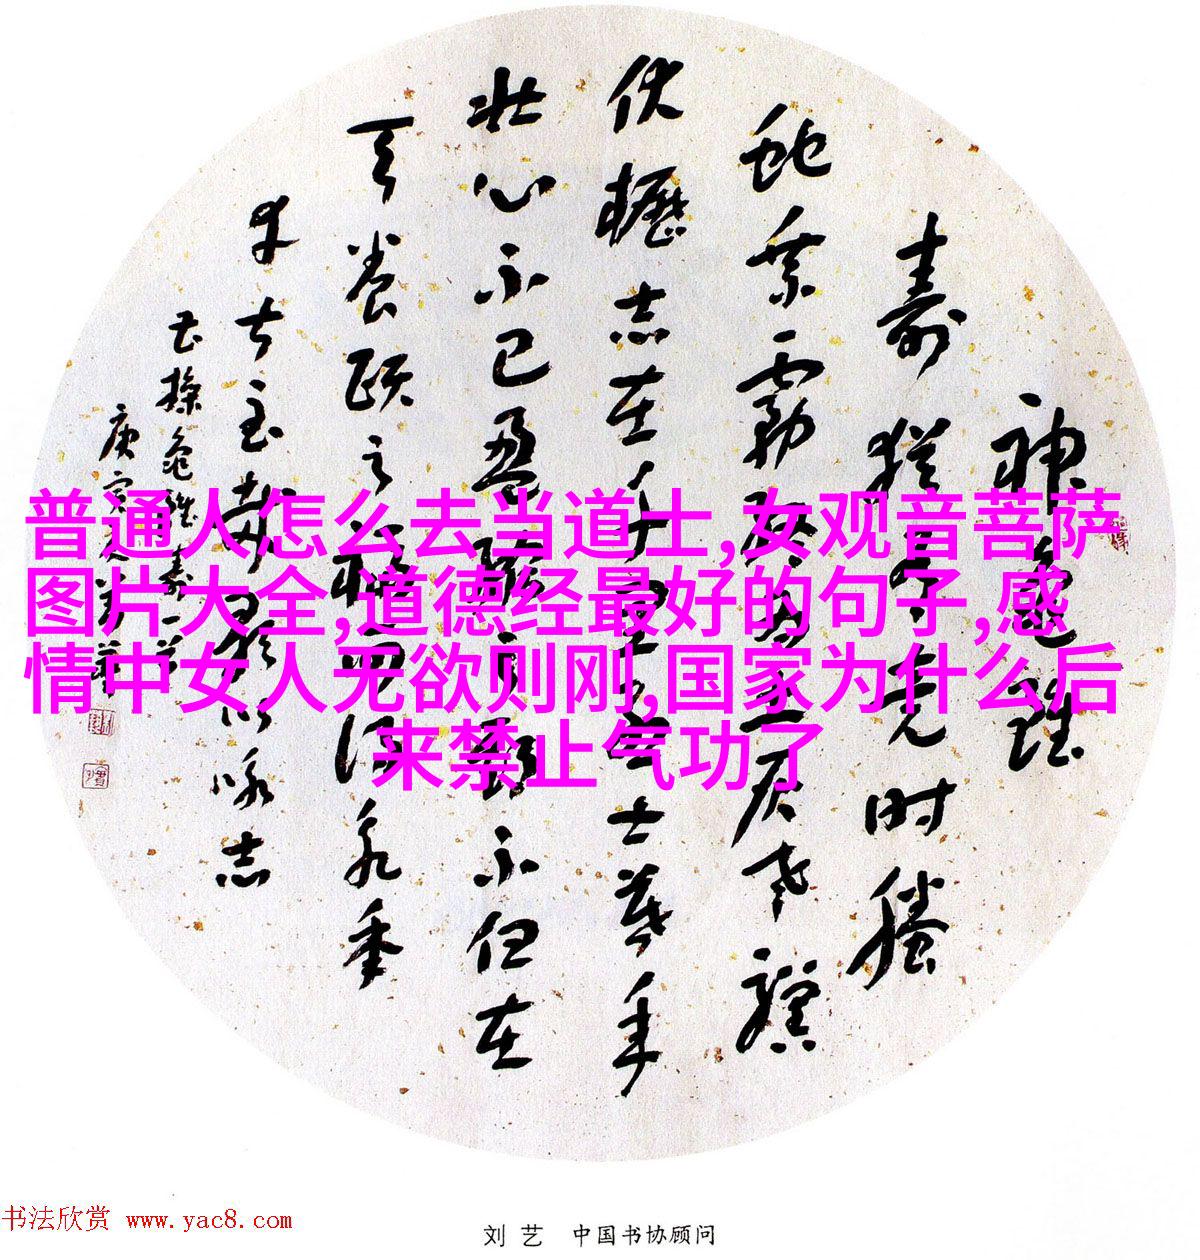 神龜雖
壽猶有竟时螣
蛇乘霧終為土灰老驥
伏櫪志在千里烈士暮年
壮心不已盈縮之期不但在
天養頤之福可得永年
幸甚至哉歌以咏志
曹操龜雖壽一首
庚寅
普通人怎么去当道士,女观音菩萨
图片大全,道德经最好的句子,感
情中女人无欲则刚,国家为什么后
来禁止气功了
书法欣赏 www.yac8.com
刘艺 中国书协顾问